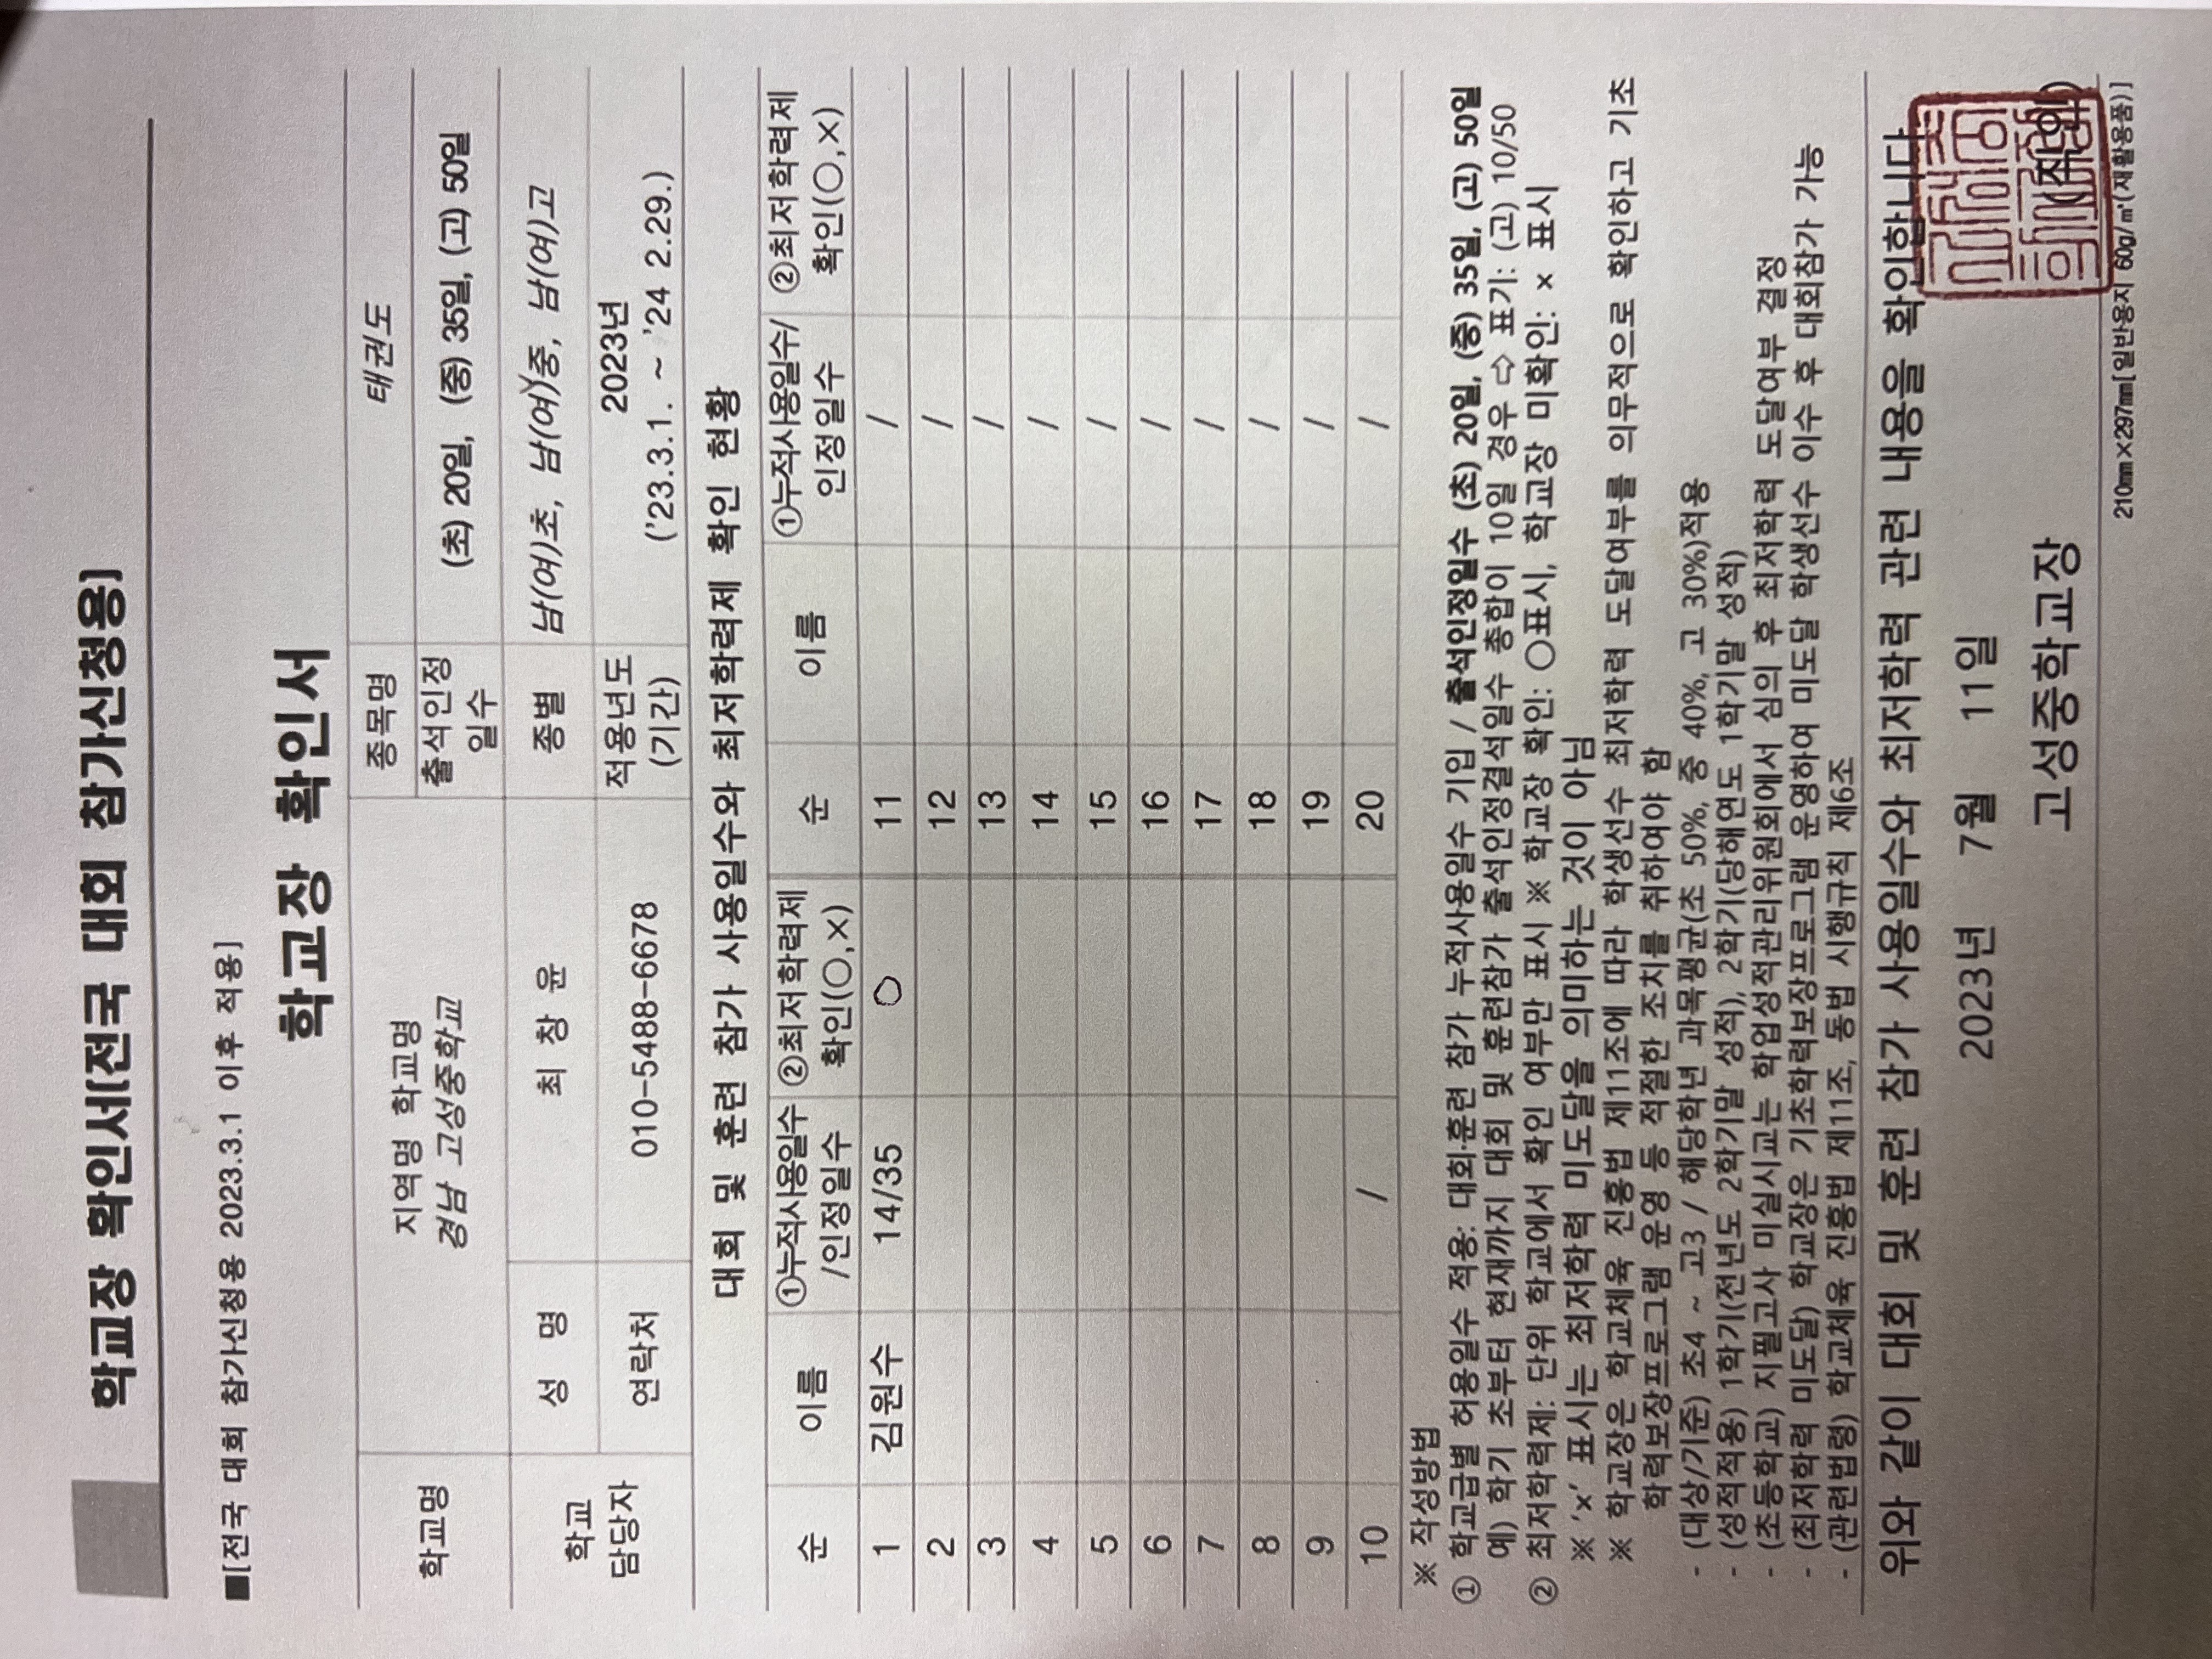 학교장 확인서[전국 대회 참가신청용]
■[전국 대회 참가신청용 2023.3.1 이후 적용]
학교장 확인서
학교명
지역명 학교명
경남 고성중학교
종목명
태권도
출석인정
일수
(초) 20일, (중) 35일, (고) 50일
학교
담당자
성 명
최 창 윤
종별
남(여)초, 남(여)중, 남(여)고
연락처
010-5488-6678
적용년도
(기간)
2023년
('23.3.1. ~ '24 2.29.)
대회 및 훈련 참가 사용일수와 최저학력제 확인 현황
순
이름
①누적사용일수
/인정일수
②최저학력제
확인(○,×)
순
이름
①누적사용일수/
인정일수
②최저학력제
확인(○,×)
1 김원수 14/35 ○ 11 /
2 12 /
3 13 /
4 14 /
5 15 /
6 16 /
7 17 /
8 18 /
9 19 /
10 / 20 /
※ 작성방법
① 학교급별 허용일수 적용: 대회·훈련 참가 누적사용일수 기입 / 출석인정일수 (초) 20일, (중) 35일, (고) 50일
예) 학기 초부터 현재까지 대회 및 훈련참가 출석인정결석일수 총합이 10일 경우 ⇨ 표기: (고) 10/50
② 최저학력제: 단위 학교에서 확인 여부만 표시 ※ 학교장 확인: ○표시, 학교장 미확인: × 표시
※ '×' 표시는 최저학력 미도달을 의미하는 것이 아님
※ 학교장은 학교체육 진흥법 제11조에 따라 학생선수 최저학력 도달여부를 의무적으로 확인하고 기초
학력보장프로그램 운영 등 적절한 조치를 취하여야 함
- (대상/기준) 초4 ~ 고3 / 해당학년 과목평균(초 50%, 중 40%, 고 30%)적용
- (성적적용) 1학기(전년도 2학기말 성적), 2학기(당해연도 1학기말 성적)
- (초등학교) 지필고사 미실시교는 학업성적관리위원회에서 심의 후 최저학력 도달여부 결정
- (최저학력 미도달) 학교장은 기초학력보장프로그램 운영하여 미도달 학생선수 이수 후 대회참가 가능
- (관련법령) 학교체육 진흥법 제11조, 동법 시행규칙 제6조
위와 같이 대회 및 훈련 참가 사용일수와 최저학력 관련 내용을 확인합니다.
2023년 7월 11일
고성중학교장 (직인)
210㎜×297㎜[일반용지 60g/㎡(재활용품)]